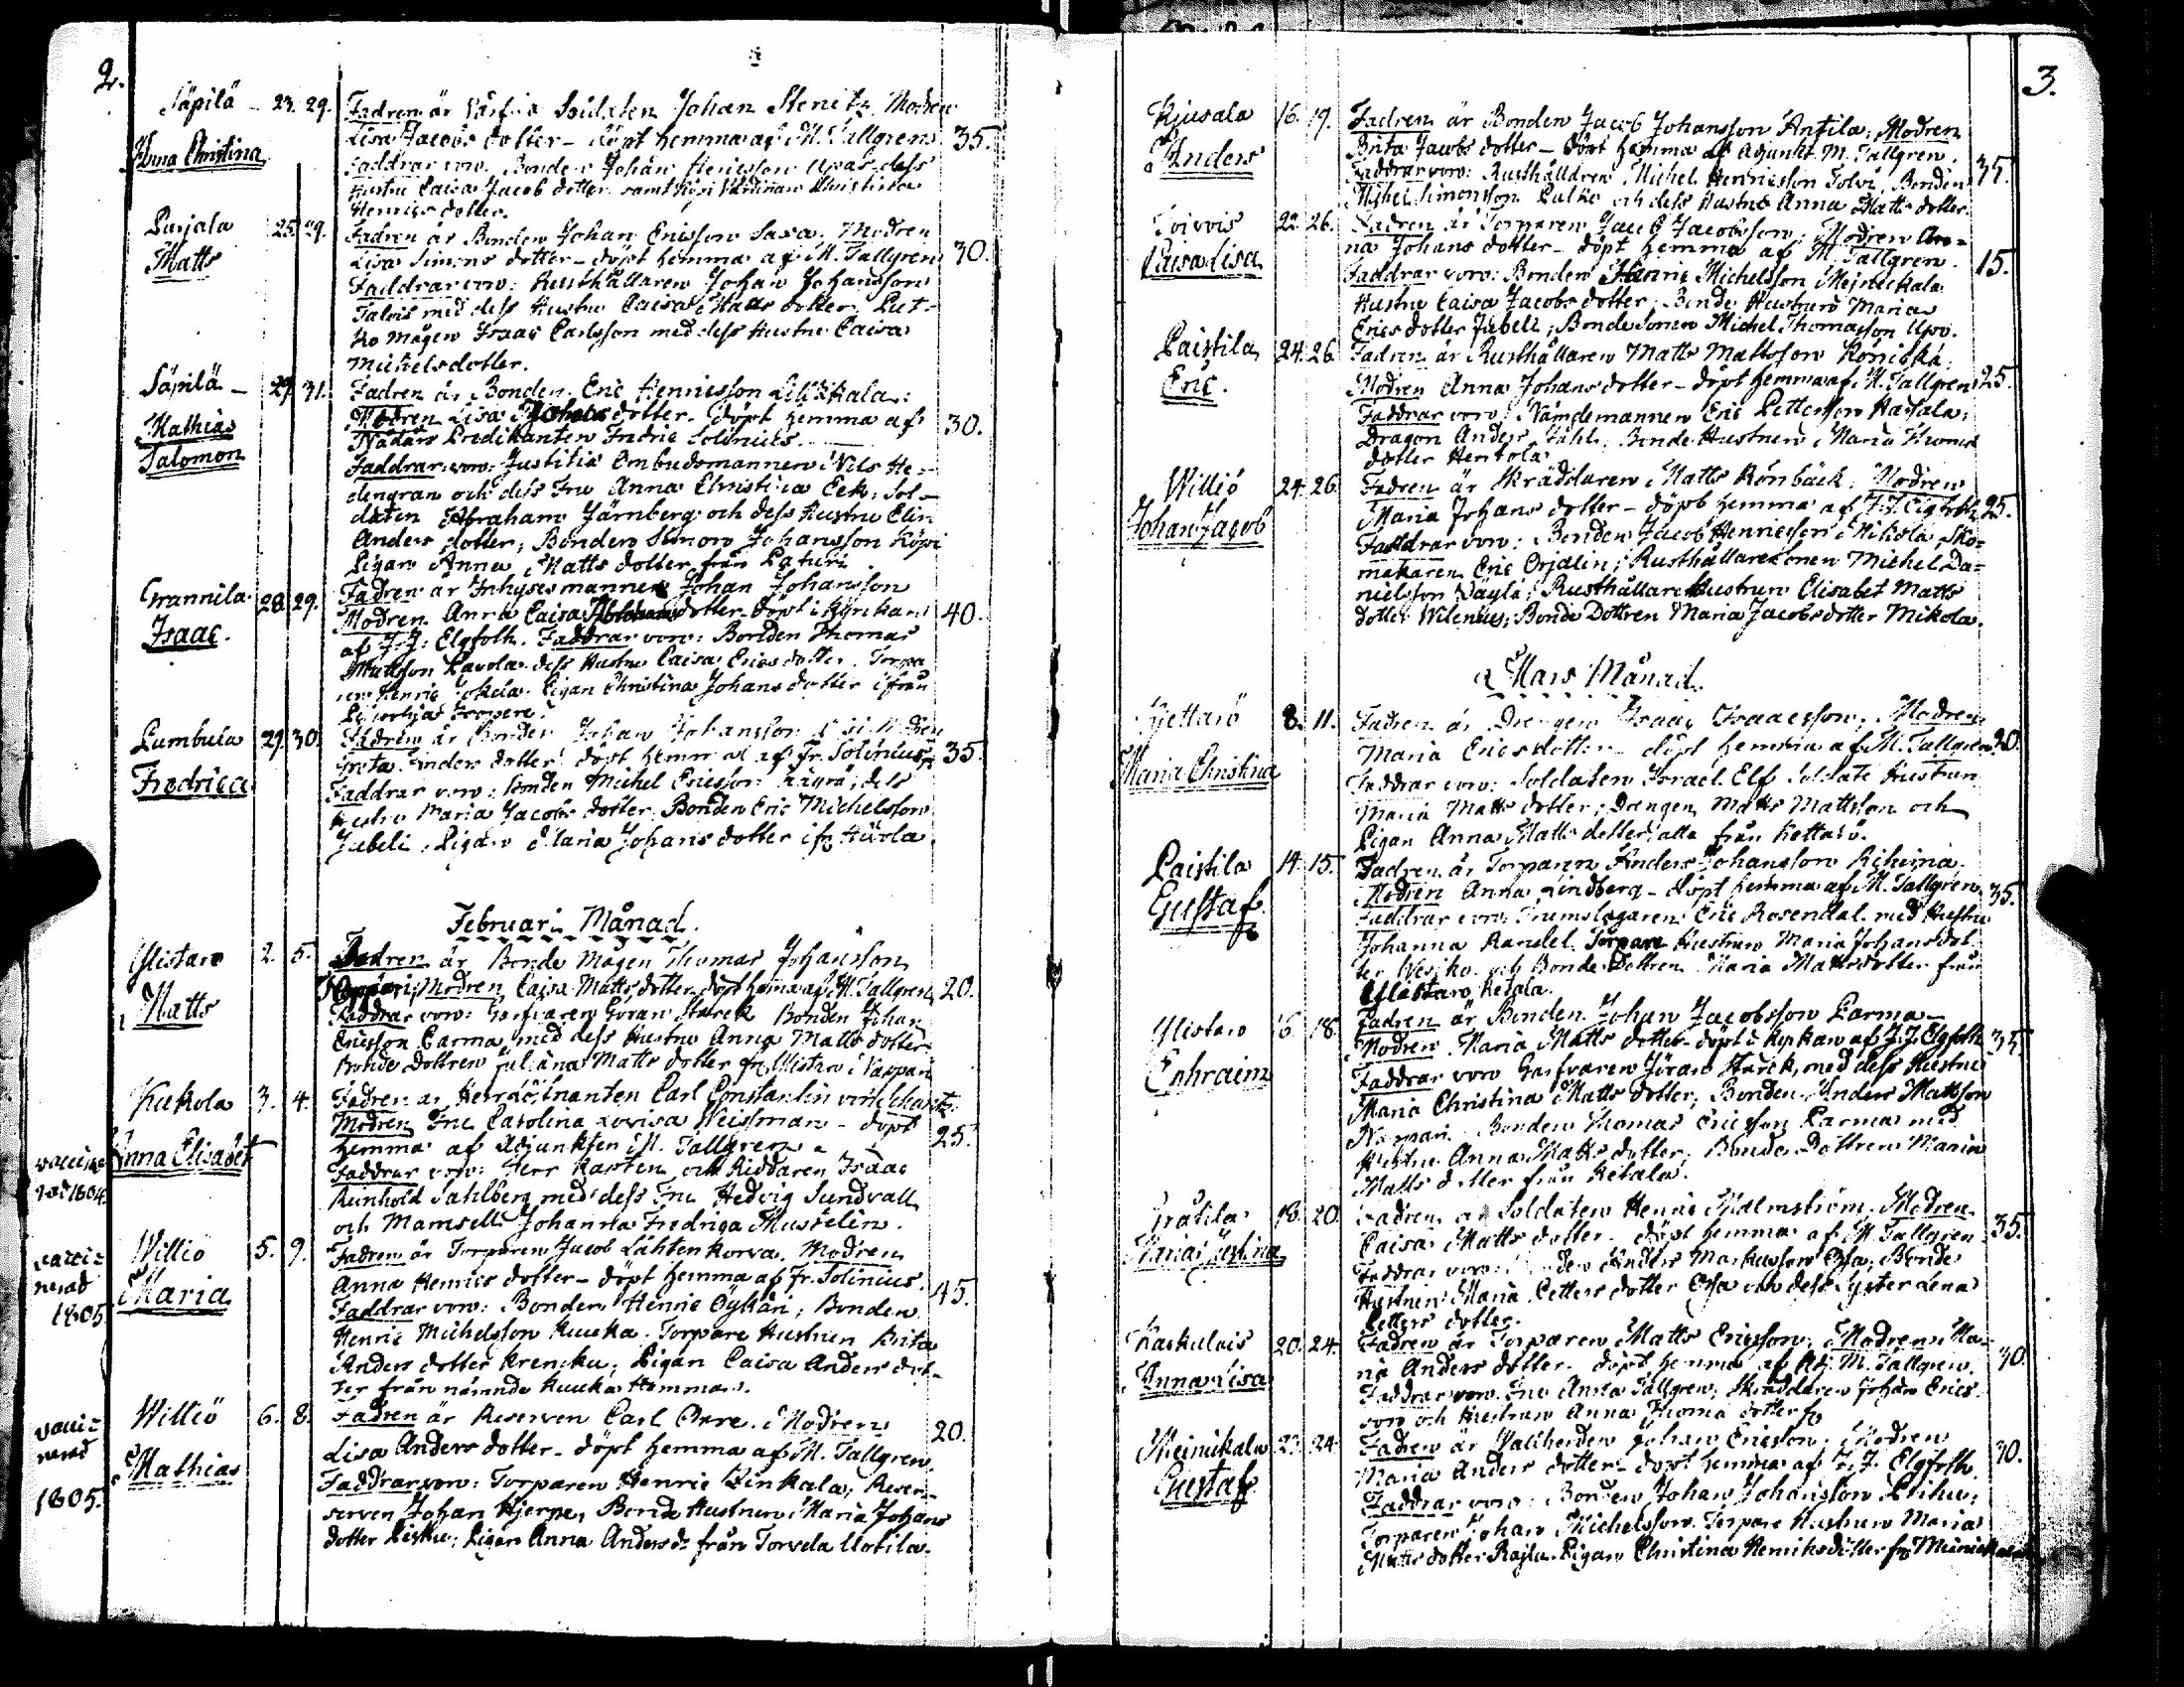 2.
Säpilä - 23. 29. Fadren är Soldaten Johan Stenitz. Modren
Anna Christina Lisa Jacobs dotter - döpt hemma af M. Tallgren 35.
Faddrar voro. Bonden Johan Henricsson dess
Hustru Caisa Jacobs dotter samt Christina
Henrics dotter.
Purjala 25. 29. Fadren är Bonden Johan Ericsson Saxa. Modren
Matts Lisa Simons dotter - döpt hemma af M. Tallgren 30.
Faddrar voro: Rusthållaren Johan Johansson
Talois med dess Hustru Caisa Matts dotter. Put-
ko mågen Isaac Carlsson med dess Hustru Caisa
Michelsdotter.
Säpilä - 29. 31. Fadren är Bonden Eric Henricsson
Mathias Modren Lisa dotter. döpt hemma af 30.
Salomon Nådårs Predikanten Fredric Solinius.
Faddrar voro: Justitiæ Ombudsmannen Nils He-
dengran och dess Fru Anna Christina Eek, Sol-
daten Abraham Järnberg och dess Hustru Elin
Anders dotter; Bonden Simon Johansson Köpi
Pigan Anna Matts dotter från
Grannila 28. 29. Fadren är Inhysesmannen Johan Johansson
Isaac. Modren Anna Caisa Abrahams dotter - döpt i Kyrkan 40.
af J. J: Elgfolth. Faddrar voro: Bonden Thomas
Mattsson Pavola dess Hustru Caisa Erics dotter. Torpa
ren Henric Jokela. Pigan Christina Johans dotter ifrån
Pumbula 29. 30. Fadren är Bonden Johan Johansson Modren
Greta Anders dotter. döpt hemma af Fr. Solinius 35.
Fredrica Faddrar voro: Bonden Michel Ericsson dess
Hustru Maria Jacobs dotter, Bonden Eric Michelsson
Jubeli, Pigan Maria Johans dotter ifr
Februari Månad.
Ylistaro 2. 5. Fadren är Bonde Mågen Thomas Johansson
Matts Modren Caisa Matts dotter döpt hemma af M. Tallgren 20.
Faddrar voro: Garfvaren Göran Starck Bonden Johan
Ericsson Parma med dess Hustru Anna Matts dotter
Bonde Dottren Juliana Matts dotter fr Ylistaro Nappari
Kukola 3. 4. Fadren är Herr Carl Constantin von Schantz
Modren Fru Carolina Lovisa Weissman - döpt
Anna Elisabet hemma af Adjunkten M. Tallgren 25.
vacine
rad 1804.
Faddrar voro: Herr Kapten och Riddaren Isaac
Reinhold Sahlberg med dess Fru Hedvig Sundvall
och Mamsell Johanna Fredriga Musselin.
Willio 5. 9. Fadren är Torparen Jacob Lähtenkorva. Modren
Anna Henrics dotter - döpt hemma af Fr. Solinius. 45.
vacci-
nerad
1805.
Maria Faddrar voro: Bonden Henric Öykäri; Bonden
Henric Michelsson Kuuka. Torpare Hustrun Brita
Anders dotter Krencku, Pigan Caisa Anders dot-
ter från nämnde Kuuka Hemman.
Williö 6. 8. Fadren är Reserven Carl Orre. Modren 20.
vacci-
nerad
1805.
Mathias Lisa Anders dotter - döpt hemma af M. Tallgren.
Faddrar voro: Torparen Henric Rinkala, Reser-
serven Johan Hjerpe, Bonde Hustrun Maria Johans
dotter Lisku; Pigan Anna Anders dr från Torvela Uotila.
3.
Kjusala 16. 19. Fadren är Bonden Jacob Johansson Antila; Modren
Anders Brita Jacobs dotter - döpt hemma af Adjunkt M. Tallgren. 35.
Faddrar voro: Rusthålldren Michel Henricsson Tolvi, Bonden
Michel Simonsson Pulko och dess Hustru Anna Matts dotter.
Toivois 22. 26. Fadren är Torparen Jacob Jacobsson; Modren An-
Caisa Lisa na Johans dotter - döpt hemma af M. Tallgren. 15.
Faddrar voro: Bonden Henric Michelsson Meinickala
Hustru Caisa Jacobs dotter; Bonde Hustrun Maria
Erics dotter Jubeli; Bonde Sonen Michel Thomasson
Paistila 24. 26. Fadren är Rusthållaren Matts Mattsson Könickä.
Eric. Modren Anna Johans dotter - döpt hemma af M. Tallgren 25.
Faddrar voro: Nämdemannen Eric Pettersson Hassala;
Dragon Anders Ståhl; Bonde Hustrun Maria Thomas
dotter Hentola.
Williö 24. 26. Fadren är Skräddaren Matts Rönbäck: Modren
Johan Jacob Maria Johans dotter - döpt hemma af J. J. Elgfolth 25.
Faddrar voro: Bonden Jacob Henricsson Mikola, Sko-
makaren Eric Orjalin; Rusthållare sonen Michel Da-
nielsson Väylä; Rusthållare Hustrun Elisabet Matts
dotter Wilenius; Bonde Dottren Maria Jacobsdotter Mikola.
Mars Månad.
Kettarö 8. 11. Fadren är Drengen Isaac Isaacsson, Modren
Maria Ericsdotter - döpt hemma af M. Tallgren 20.
Maria Christina Faddrar voro: Soldaten Israel Elf Soldate Hustrun
Maria Matts dotter; Drengen Matts Mattsson och
Pigan Anna Matts dotter, alla från Kettarö.
Paistila 14. 15. Fadren är Torparen Anders Johansson
Gustaf. Modren Anna Lindberg - döpt hemma af M. Tallgren. 35.
Faddrar voro: Trumslagaren Eric Rosendal med Hustru
Johanna Randel. Torpare Hustrun Maria Johans dot-
ter Wesiko och Bonde Dottren Maria Mattsdotter från
Ylistaro Ketala.
Ylistaro 16. 18. Fadren är Bonden Johan Jacobsson Parma -
Ephraim Modren Maria Matts dotter - döpt i Kyrkan af J. J. Elgfolth 35.
Faddrar voro Garfvaren Jöran Starck, med dess Hustru
Maria Christina Matts dotter, Bonden Anders Mattsson
Nappari. Bonden Thomas Ericsson Parma med
Hustru Anna Matts dotter, Bonde Dottren Maria
Matts dotter från Ketala.
18. 20. Fadren är Soldaten Henric Malmström. Modren
Maria Justina Caisa Matts dotter. döpt hemma af M. Tallgren 35.
Faddrar voro: Bonden Anders Markusson Ossa, Bonde
Hustrun Maria Petters dotter Ossa och dess Syster Lena
Petters dotter.
Kaskulais 20. 24. Fadren är Torparen Matts Ericsson. Modren Ma-
Anna Lisa ria Anders dotter. döpt hemma af Adj. M. Tallgren. 30.
Faddrar voro. Fru Anna Tallgren, Skräddaren Johan Erics-
son och Hustrun Anna Thomæ dotter fr
Meinikala 23. 24. Fadren är Wallherden Johan Ericsson. Modren
Gustaf. Maria Anders dotter - döpt hemma af J. J. Elgfolth. 30.
Faddrar voro: Bonden Johan Johansson
Torparen Johan Michelsson. Torpare Hustrun Maria
Matts dotter Rajla. Pigan Christina Henriksdotter fr Meinickala